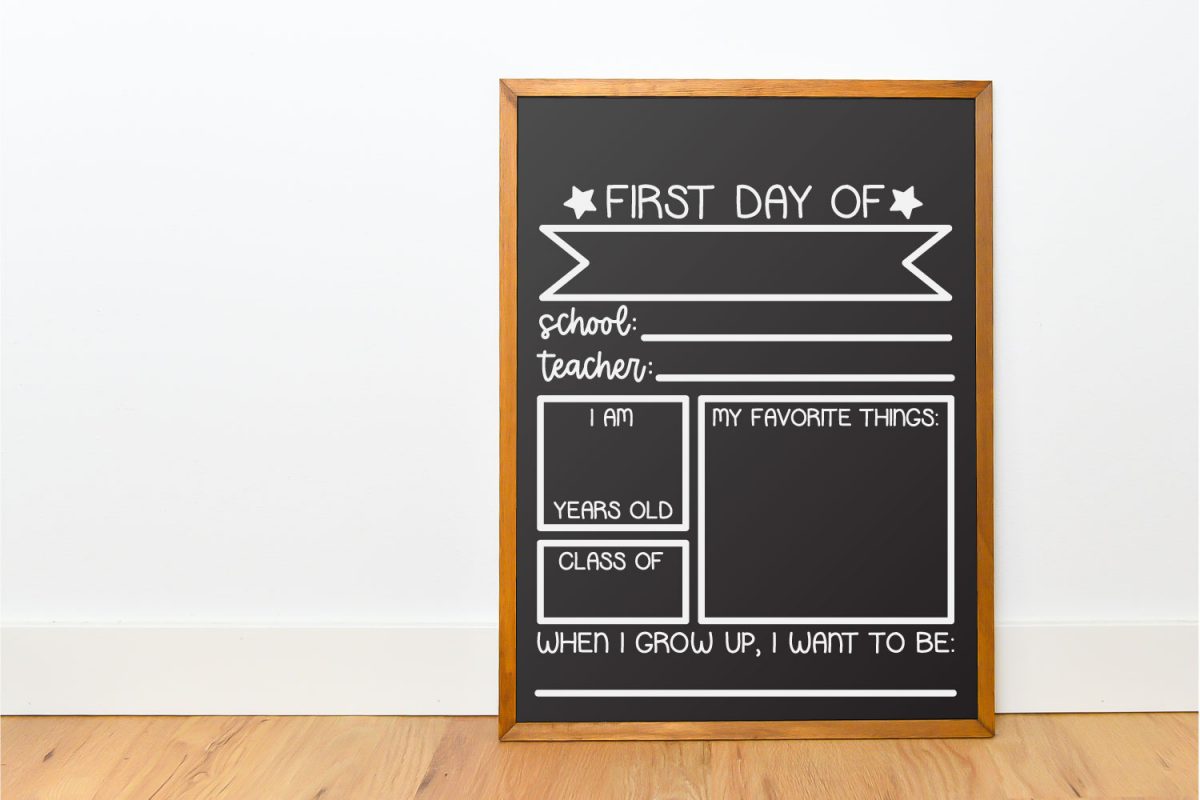 FIRST DAY OF
school:
teacher:
I AM
YEARS OLD
CLASS OF
MY FAVORITE THINGS:
WHEN I GROW UP, I WANT TO BE: